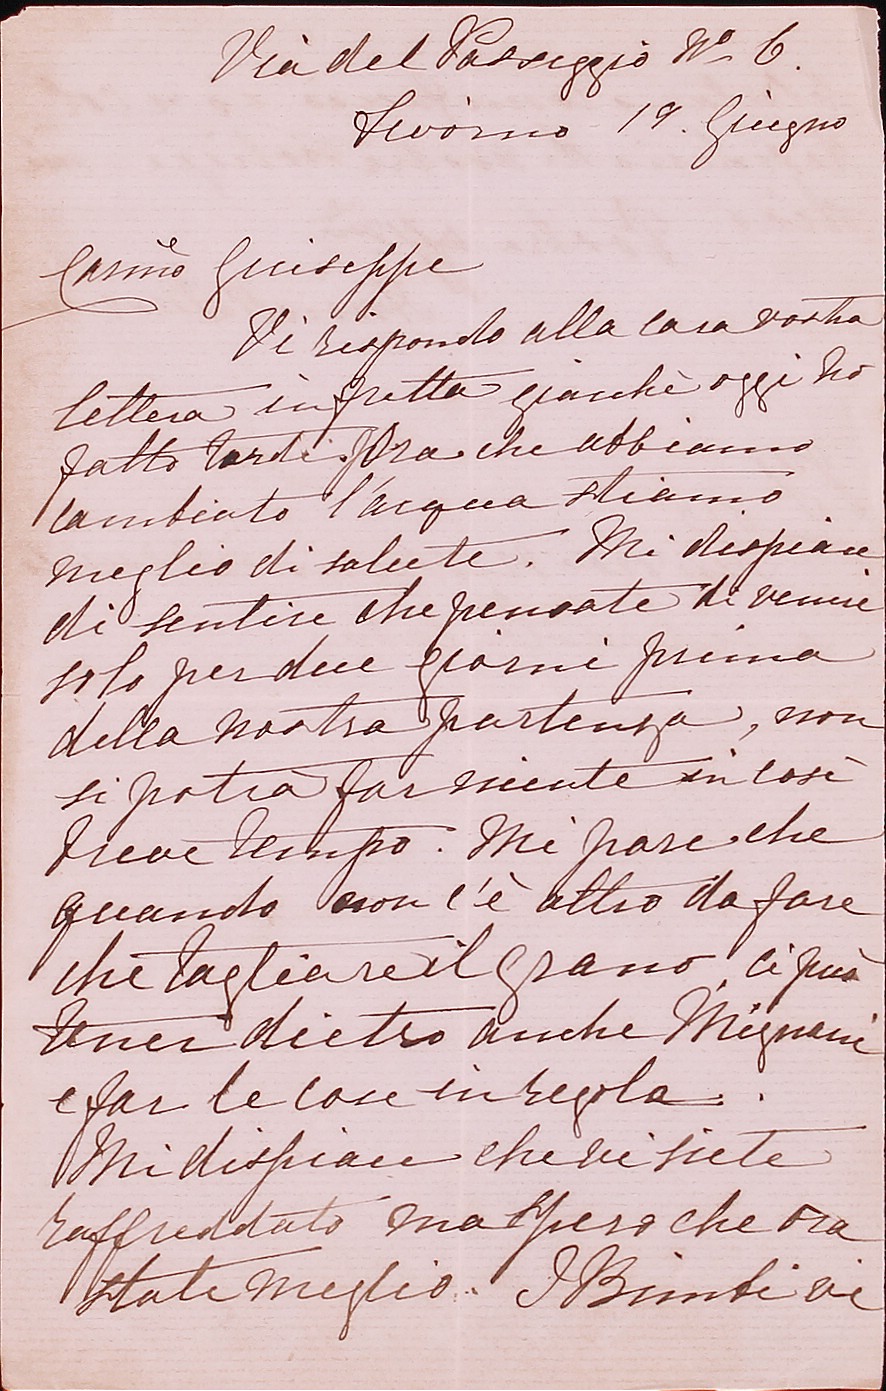 Via del Passeggio Nº 6.
Livorno 19. Giugno
Carmo Giuseppe
Vi rispondo alla cara vostra
lettera in fretta giacchè oggi ho
fatto tardi. Ora che abbiamo
cambiato l'acqua stiamo
meglio di salute. Mi dispiace
di sentire che pensate di venire
solo per due giorni prima
della nostra partenza, non
si potrà far niente in così
breve tempo. Mi pare che
quando non c'è altro da fare
che tagliare il grano, ci può
tener dietro anche Mignani
e far le cose in regola.
Mi dispiace che vi siete
raffreddato ma spero che ora
state meglio. I Bimbi vi